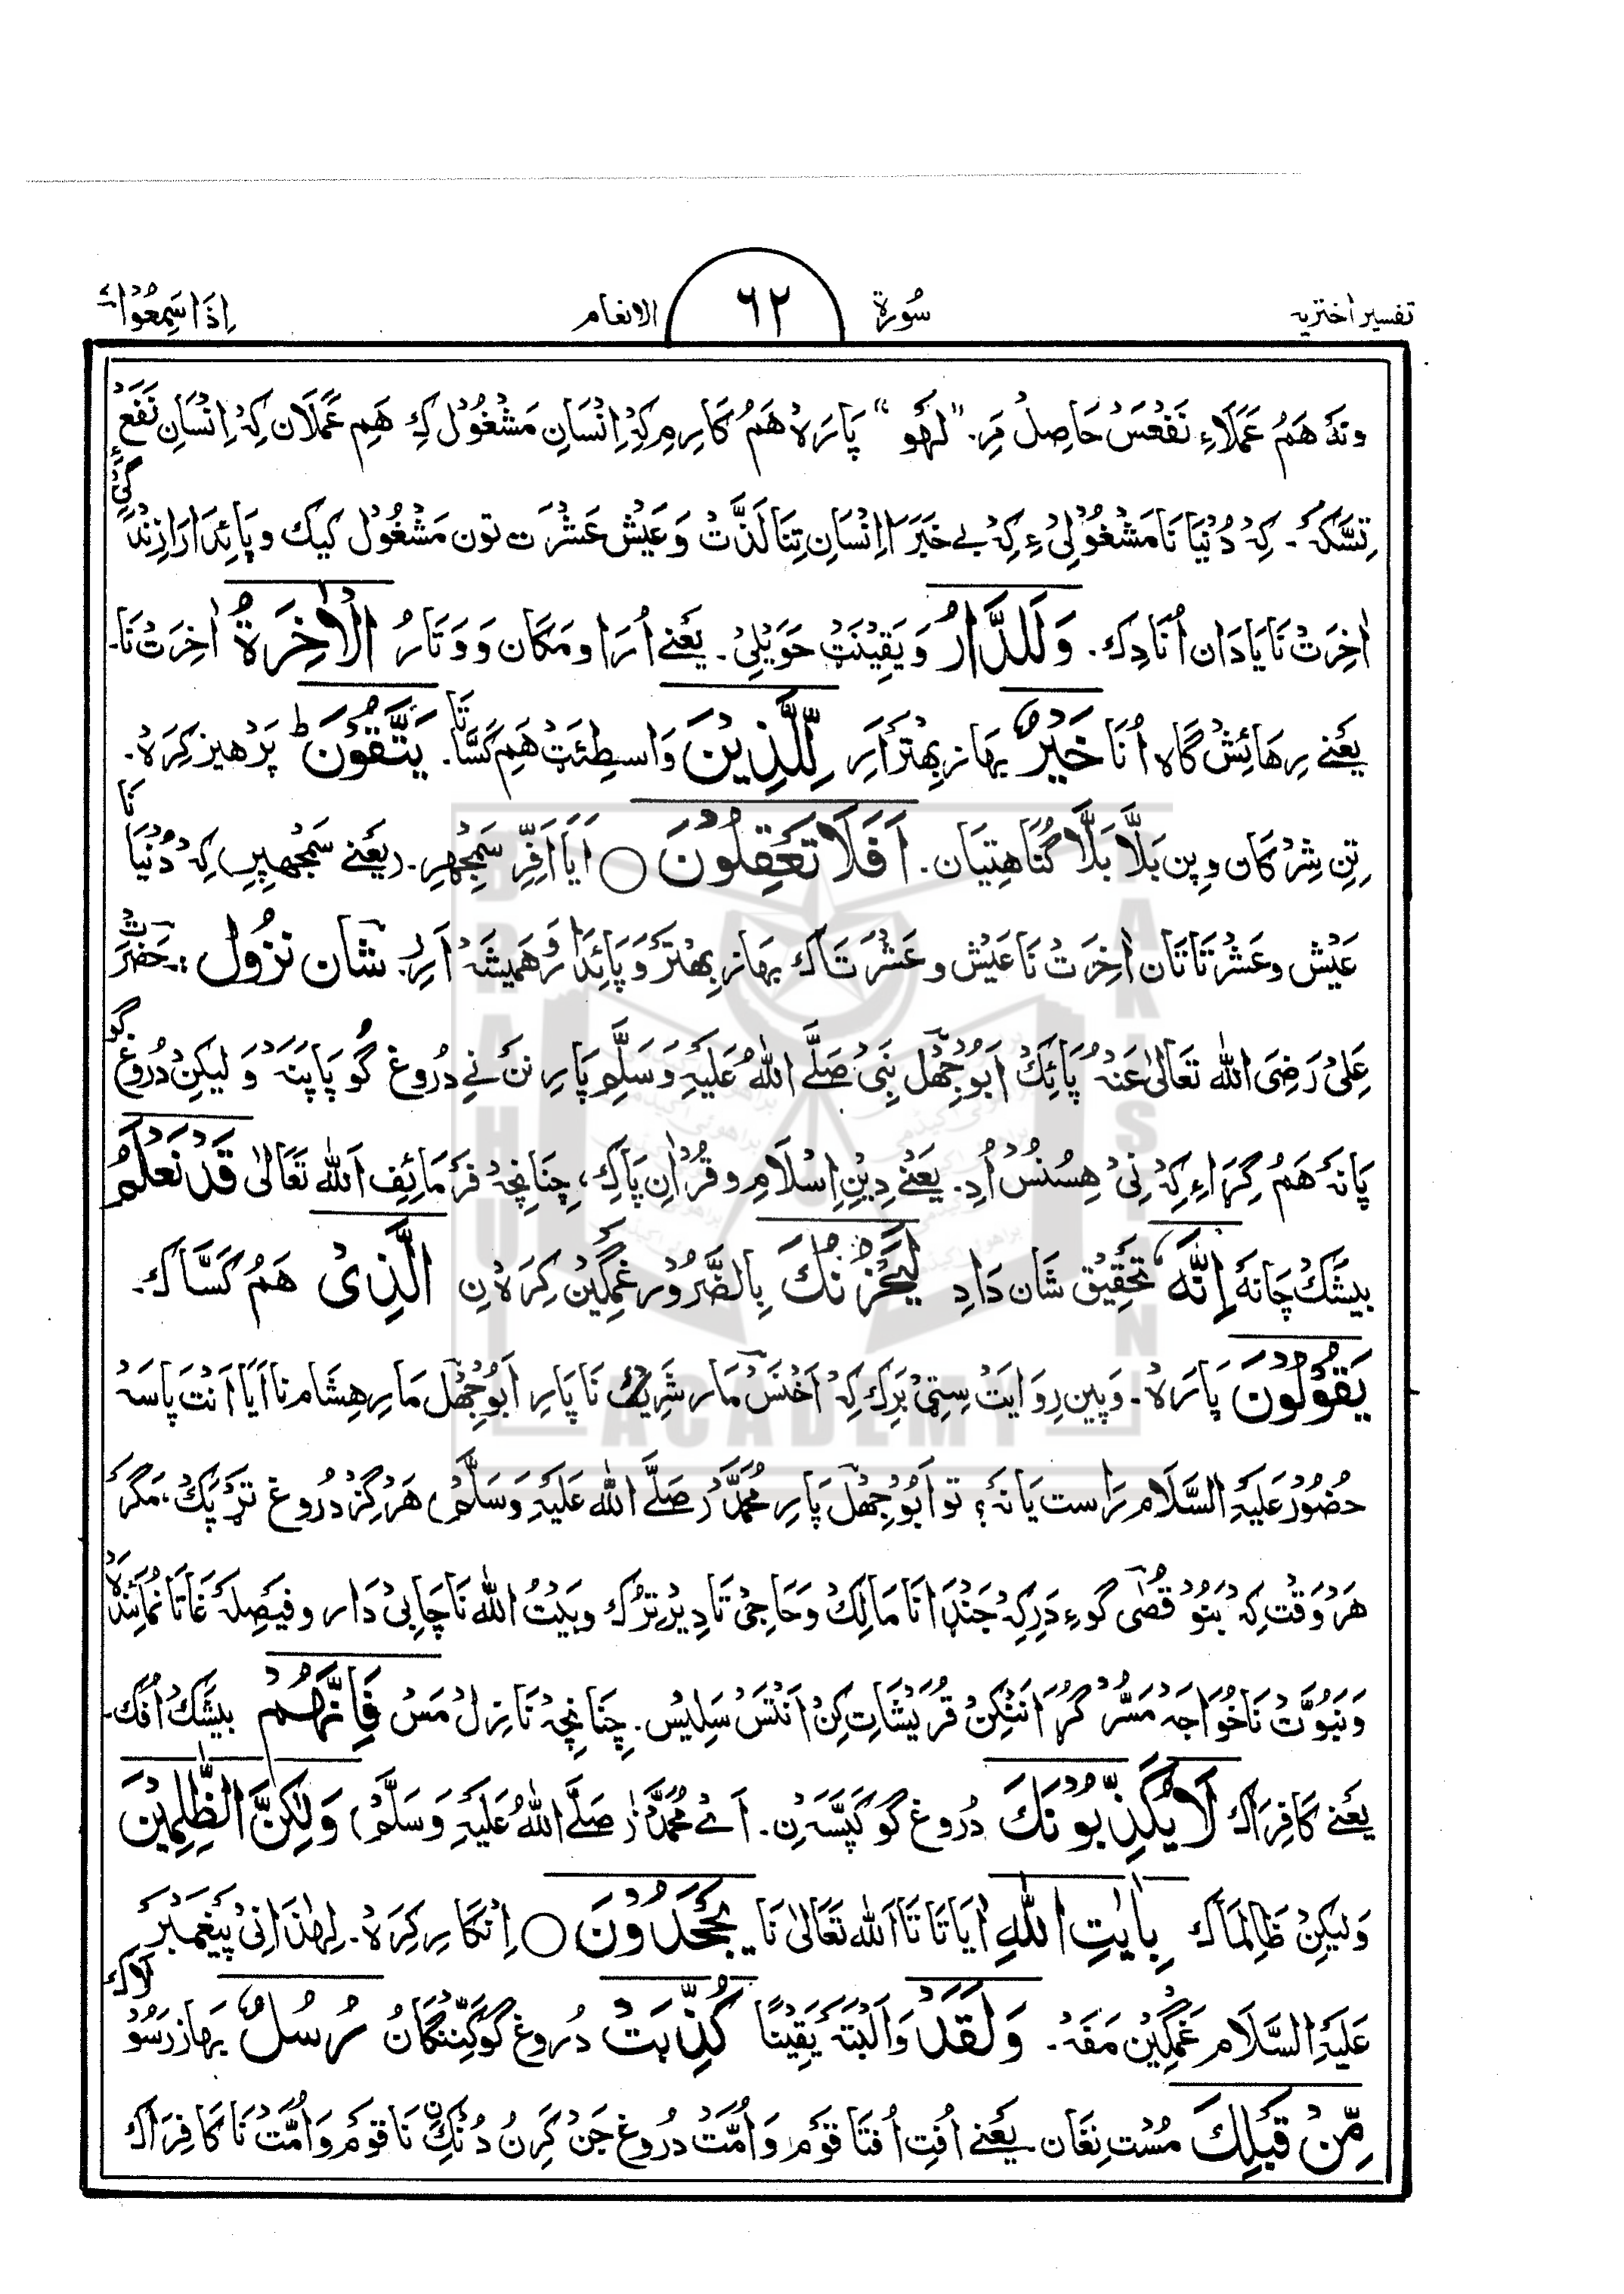 تفسیر اختریہ
سُورة
٦٢
الانعام
اِذَا سَمِعُوْا
ونہ هَمُ عَمَلَاءِ نَفْعَسْ حَاصِلْ مَرِ. "لَهْو" پَارَہْ هَمُ كَارِمِ كِہْ اِنْسَانِ مَشْغُوْل كِ هَمِ عَمَلَان كِہْ اِنْسَانِ نَفَعْ
تِسَّكَہْ۔ كِہْ دُنْيَا نَا مَشْغُوْلِیْ ءِ كِہْ بے خَبَرَ اِنْسَانِ تِنَا لَذَّتْ وَ عَيْش عَشْرَت تون مَشْغُوْل كيك و پَائِدَار اَ زِنْدَگِیْ
اٰخِرَتْ نَا يَادَان اُنَا دِك. وَلَلدَّارُ وَ يَقِيْنَتْ حَوَيْلِیْ۔ يَعْنے اُرَا و مَكَان وَ وَتَارُ الْاٰخِرَةُ اٰخِرَتْ نَا۔
يَعْنے رِهَائِشْ گَاہ اُنَا خَيْرٌ بهَاز بِهْتَر اَرِ لِّلَّذِيْنَ وَاسِطِئَتْ هَم كَسَّاتَا۔ يَتَّقُوْنَ ط پَرْهيز كِرَہْ۔
تِن شِرْكَان و پِن بَلَّا بَلَّا گُنَاهتِيَان. اَفَلَا تَعْقِلُوْنَ ○ اَيَا اَفَرِّ سَمِجْهِرِ. (يَعْنے سَمْجهپِرِ) كِہْ دُنْيَا نَا
عَيْش و عَشْرَتَا تَان اٰخِرَتْ نَا عَيْش و عَشْرَتَاك بهَاز بِهْتَر وَ پَائِدَارْ وَ هَمِيْشَہْ اَرِ. شَان نزُول :۔ حَضْرَتْ
عَلِیْ رَضِیَ اللّٰه تَعَالٰی عَنْہُ پَائِك اَبُوْجَهْل نَبِیْ صَلَّے اللّٰهُ عَلَيْہِ وَسَلَّم پَارِ نَن نے دُروغ گو پَاپَنَہْ وَ ليكِنْ دُرُوغ گو
پَانَہْ هَمُ كِرَاءِ كِہْ نِیْ هِسُنُسْ اُدِ. يَعْنے دِيْنِ اِسْلَامِ و قُرْاٰن پَاكِ، چنَانچہْ فَرْمَائِف اَللّٰه تَعَالٰی قَدْ نَعْلَمُ
بيشَكْ چَانَہْ اِنَّهٗ تحقِيْق شَان دَادِ لَيَحْزُنُكَ بِالضَّرُوْر غَمگِيْن كِرَہْ نِ الَّذِیْ هَمُ كَسَّاك۔
يَقُوْلُوْنَ پَارَہْ۔ وَ پِين رِوَايَتْ سِتیْ بَرَك كِہْ اَخْنَسْ مَار شَرِيْك نَا پَارِ اَبُوْجَهْل مَارِ هِشَام نا اَيَا اَنْتَ پَاسَہْ
حضُوْر عَلَيْہِ السَّلَام رَاست يَا نَہْ؟ تو اَبُوْجَهْل پَارِ مُحَمَّدْ (صَلَّے اللّٰهُ عَلَيْہِ وَسَلَّمْ) هَرْگِزْ دُروغ تَرْ پَك، مَگرْ
هَرْ وَقْت كِہْ بَنُوْ قُصَیْ گوءِ دَرِكِہْ جَنْڈَا نَا مَالِكْ وَ حَاجِیْ تَا دِيْر تَرُك و بَيْتُ اللّٰه نَا چَابِیْ دَار و فَيْصِلَہ غَاتَا نُمَائِنْدَہْ
وَ نَبُوَّتْ نَا خُوَاجَہْ مَسُّرْ گُڑَا اَنْتْكِنْ قُرَيْشَاتِ كِنْ اَنْتَسْ سَلِيْس. چنَانچہْ نَازِلْ مَسْ فَاِنَّهُمْ بيشَكْ اُفْك۔
يَعْنے كَافِرَاك لَا يُكَذِّبُوْنَكَ دُروغ گو كَپَّسَہ نِ. اَے مُحَمَّدْ (صَلَّے اللّٰهُ عَلَيْہِ وَسَلَّمْ) وَلٰكِنَّ الظّٰلِمِيْنَ
وَليكِنْ ظَالِمَاك بِاٰيٰتِ اللّٰهِ اٰيَاتَا تَا اَللّٰه تَعَالٰی نَا يَجْحَدُوْنَ ○ اِنْكَار كِرَہْ. لِهٰذَا نِیْ پَيْغَمْبَرْ
عَلَيْہِ السَّلَام غَمگِيْن مَفَہْ۔ وَلَقَدْ وَ اَلْبَتَّہ يَقِيْنًا كُذِّبَتْ دُروغ گو كَنِّنْگَانُ رُسُلٌ بهَاز رَسُوْلاَك
مِّنْ قَبْلِكَ مُسْت نِغَان۔ يَعْنے اُفْتِ اُفْتَا قَوْم وَ اُمَّتْ دُروغ جَنْ كَرْنُ دُنْكِہ نَا قَوْم وَ اُمَّتْ نَا كَافِرَاك